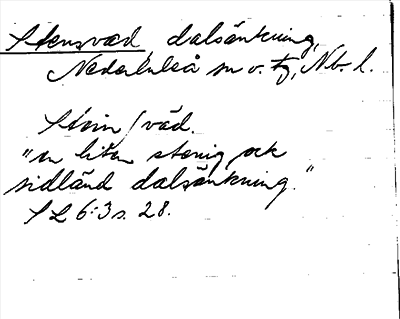 Stensvad, dalsänkning,
Nederluleå sn v. tg, Nb. l.
Stein/vàd.
"en liten stenig och
sidländ dalsänkning."
SL 6:3 s. 28.